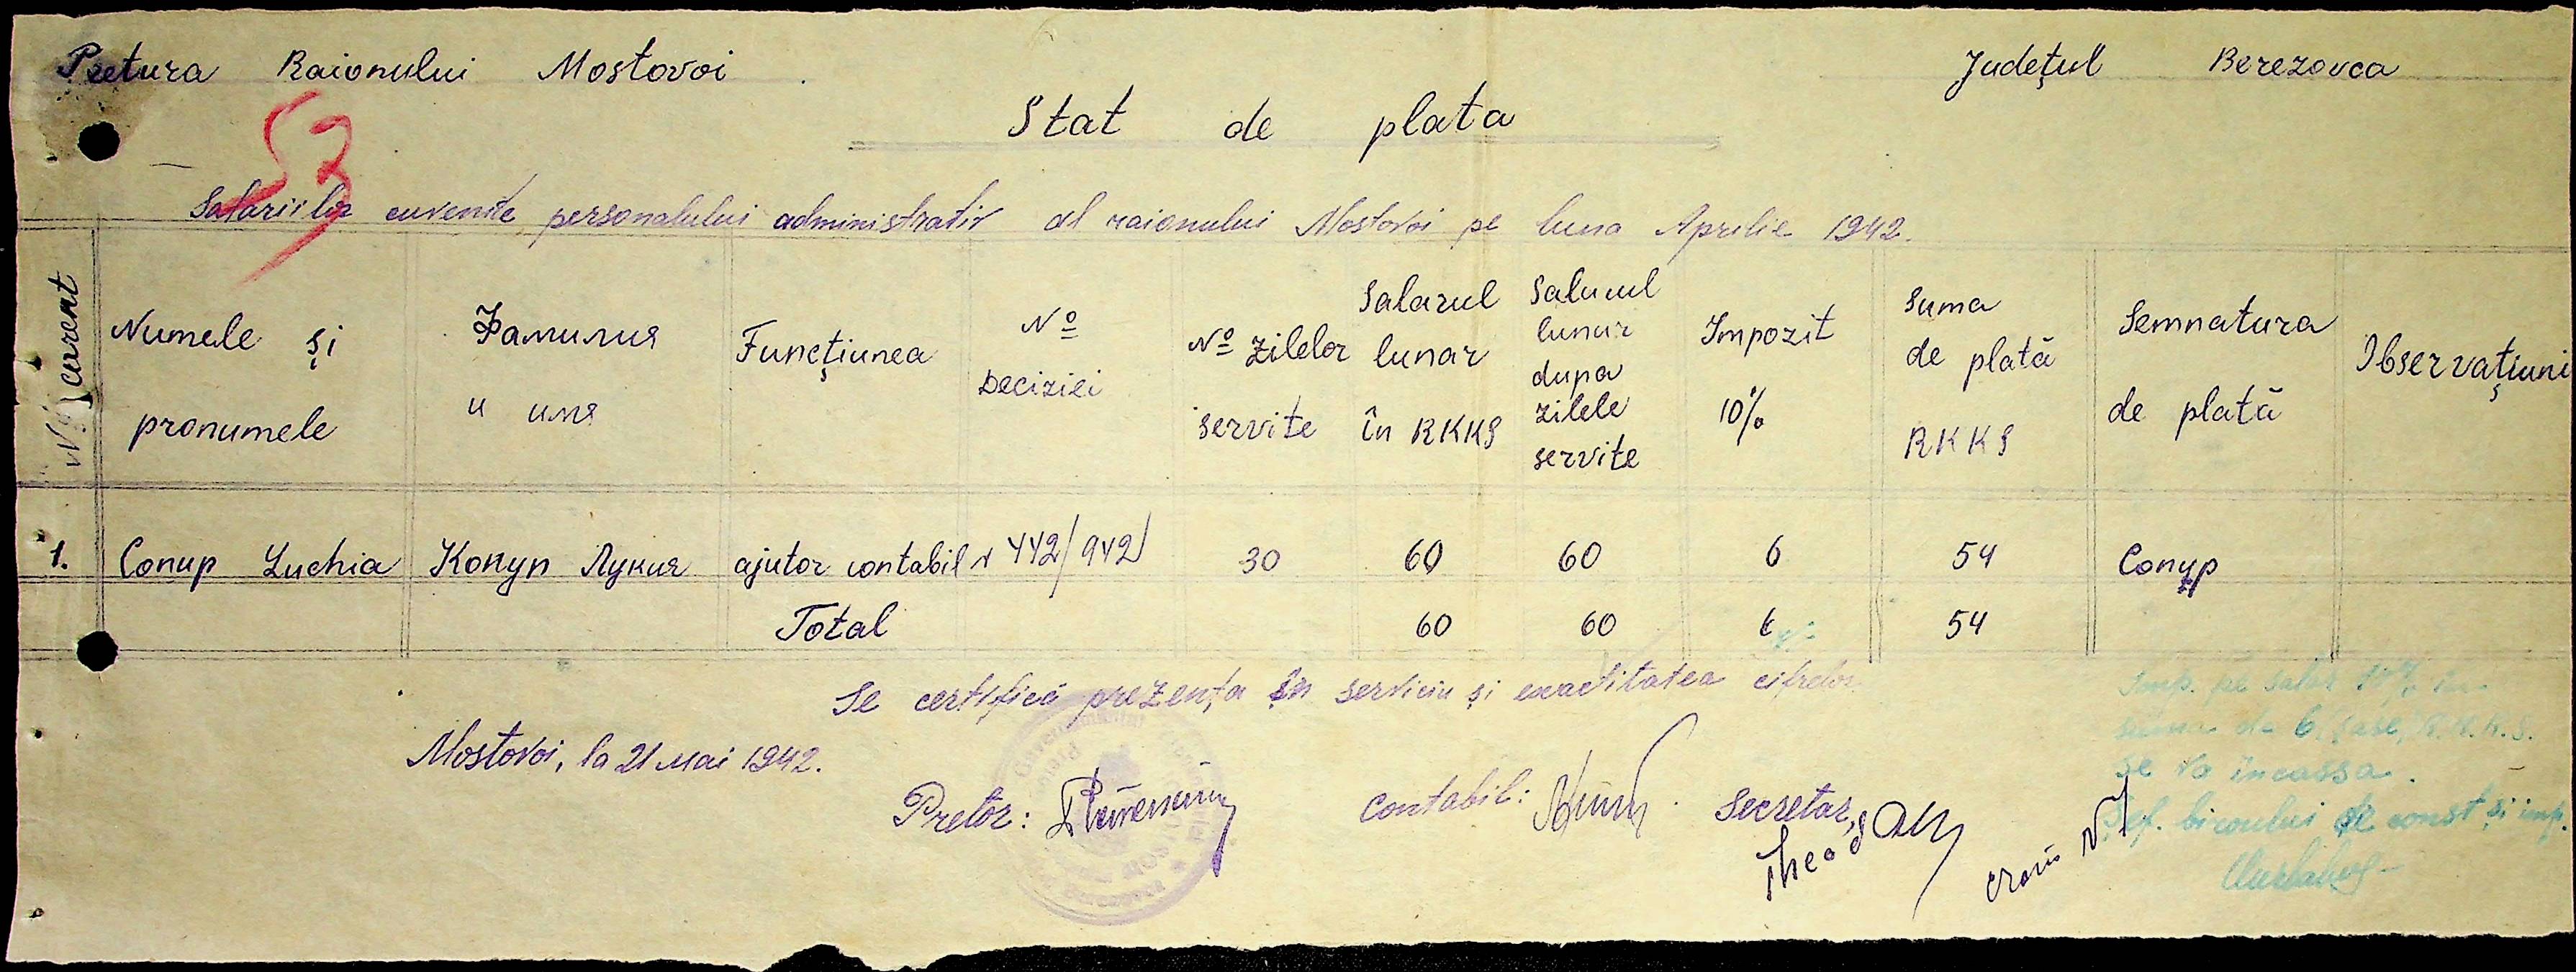 Pretura Raionului Mostovoi
Județul Berezovca
53
Stat de plata
Salariilor cuvenite personalului administrativ al raionului Mostovoi pe luna Aprilie 1942.
№ curent
Numele și pronumele
Фамилия и имя
Funcțiunea
№ Deciziei
№ zilelor servite
Salarul lunar în RKKS
Salarul lunar dupa zilele servite
Impozit 10%
Suma de plată RKKS
Semnatura de plată
Observațiuni
1. Conup Luchia Конуп Лукия ajutor contabil 442/942 30 60 60 6 54 Conup
Total 60 60 6 54
Se certifică prezența în serviciu și exactitatea cifrelor
Mostovoi, la 21 Mai 1942.
Pretor:
Contabil:
Secretar,
Imp. pe salar 10% în
suma de 6, șase, R.K.K.S.
se va încassa.
Șef. biroului de const și imp.